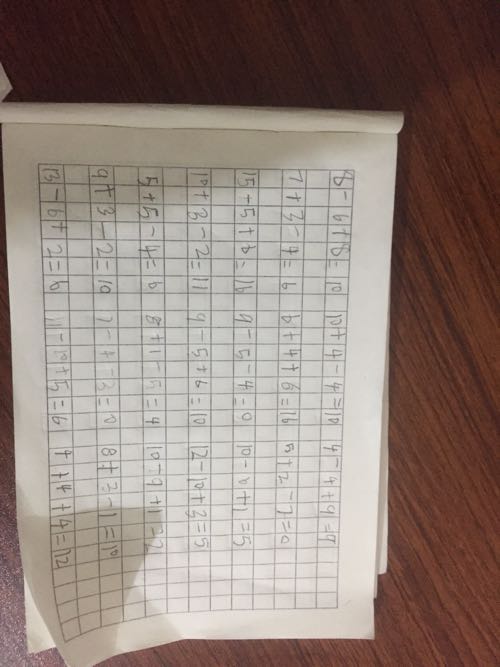 8-6+8=10 10+4-4=10 4-4+9=9
7+3-4=6 6+4+6=16 5+2-7=0
15-5+6=16 9-5-4=0 10-6+1=5
10+3-2=11 9-5+6=10 12-10+3=5
5+5-4=6 8+1-5=4 10-9+1=2
9+3-2=10 7-4-3=0 8+3-1=10
13-6+2=6 11-10+5=6 4+4+4=12